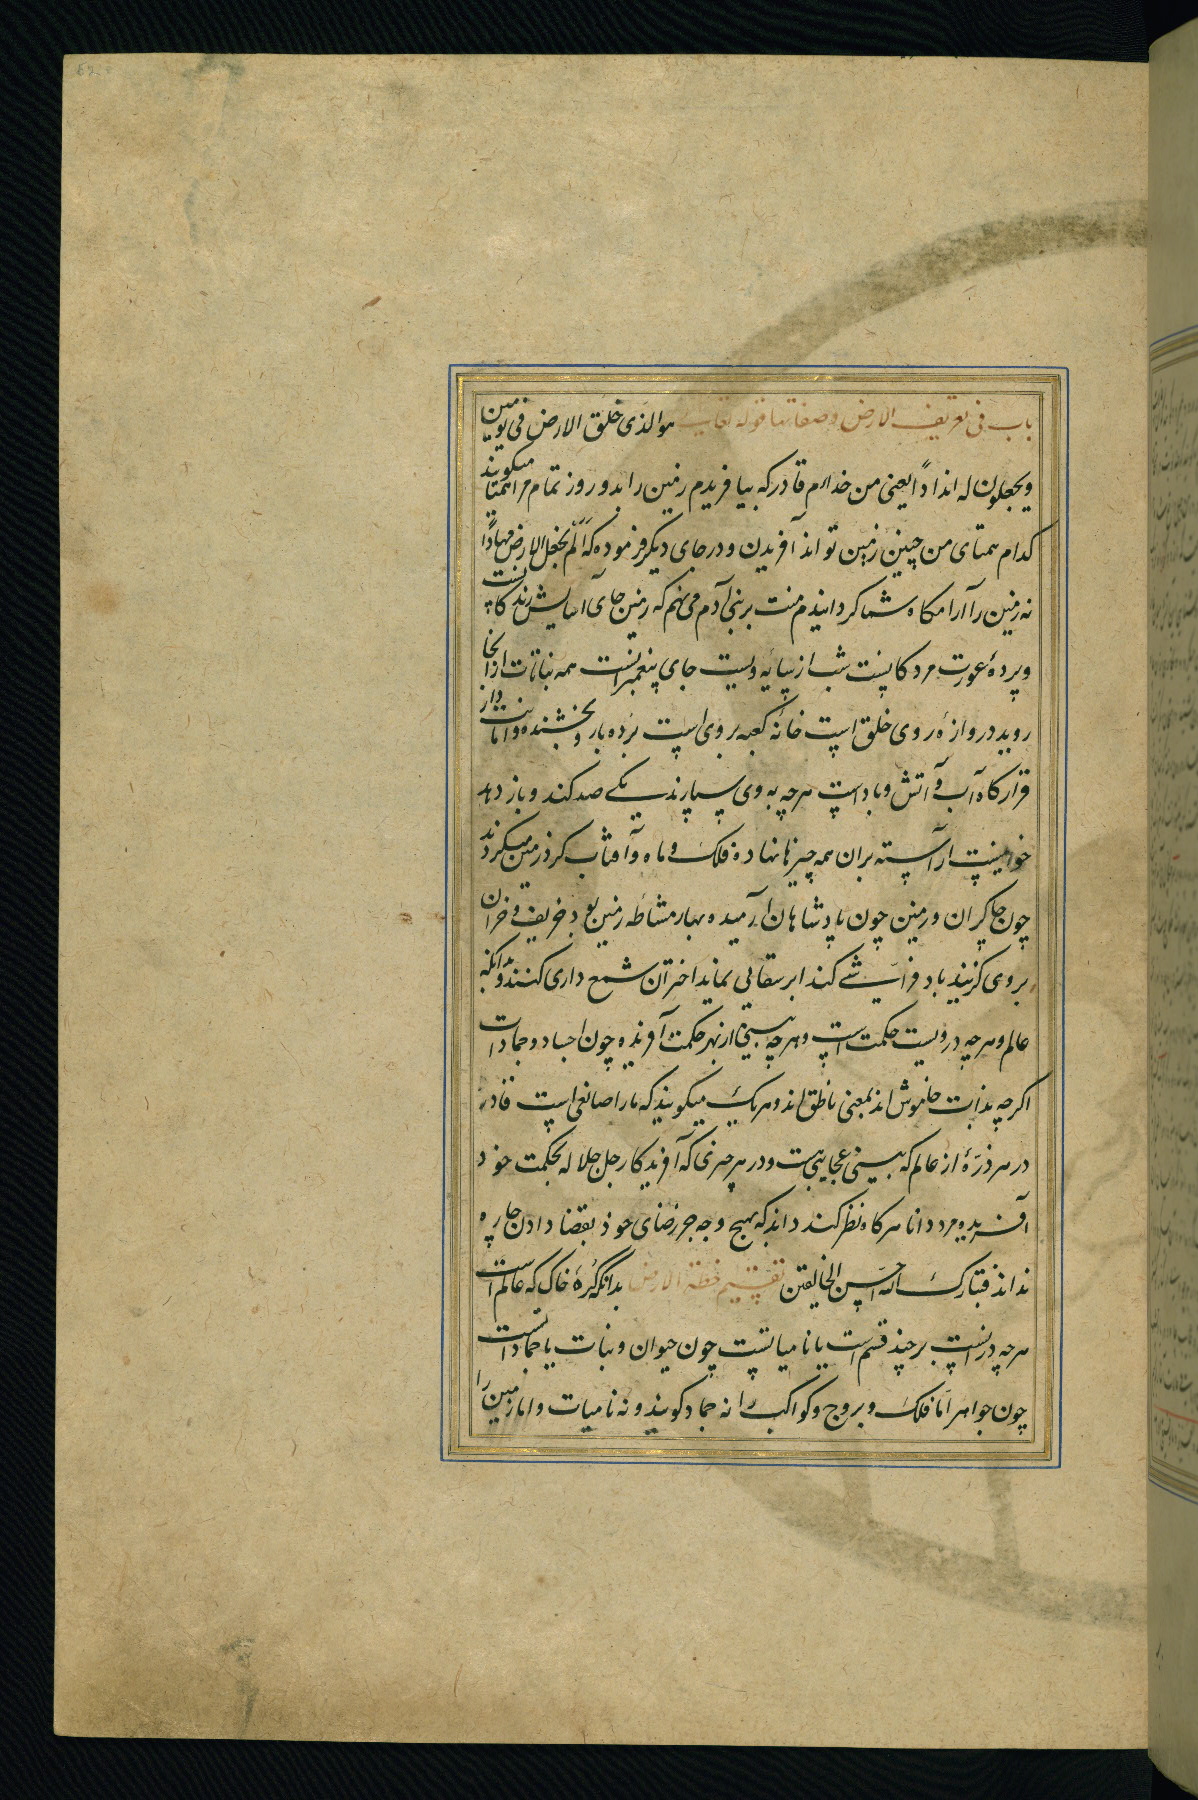 باب فی تعریف الارض و صفاتها قوله تعالی هو الذی خلق الارض فی یومین
ویجعلون له انداداً یعنی من خدایم قادر که بیافریدم زمین را بدو روز تمام مرا همتا میکویند
کدام همتای من چنین زمین تواند آفریدن و در جای دیکر فرموده که الم نجعل الارض مهاداً
نه زمین را آرامکاه شما کردانیدم منت بر بنی آدم می نهم که زمین جای آسایش زندکانست
و پردهٔ عورت مردکانست شب از سایهٔ ویست جای پیغمبرانست همه نباتات از آنجا
روید دروازهٔ روی خلق است خانهٔ کعبه بر وی است بردهبار و بخشنده و امانت دار
قرارکاه آب و آتش و باد است هرچه به وی سپارند یکی صد کند و باز دهد
خوانیست آراسته بران همه چیزها نهاده فلک و ماه و آفتاب کرد زمین میکردند
چون چاکران و زمین چون پادشاهان آرمیده بهار مشاطه زمین بود خریف و خزان
بر وی کزیند باد فراشی کند ابر سقایی نماید اختران شمع داری کنند و آنکه
عالم و هرچه درویست حکمت است و هرچه بینی از بهر حکمت آفریده چون اجساد و جمادات
اکرچه بذات خاموش اند بمعنی ناطق اند و هر یک میکویند که ما را صانعی است قادر
در هر ذرّهٔ از عالم که ببینی عجایبی هست و در هر چیزی که آفریدکار جل جلاله بحکمت خود
آفریده مرد دانا هرکاه نظر کند داند که بهیچ وجه جز رضای خود بقضا دادن چاره
نداند فتبارک الله احسن الخالقین تقسیم خطة الارض بدانکه کرهٔ خاک که عالم است
هرچه درانست بر چند قسم است یا نامیاتست چون حیوان و نبات یا جمادانست
چون جواهر اما فلک و بروج و کواکب را نه جماد کویند و نه نامیات و اما زمین را